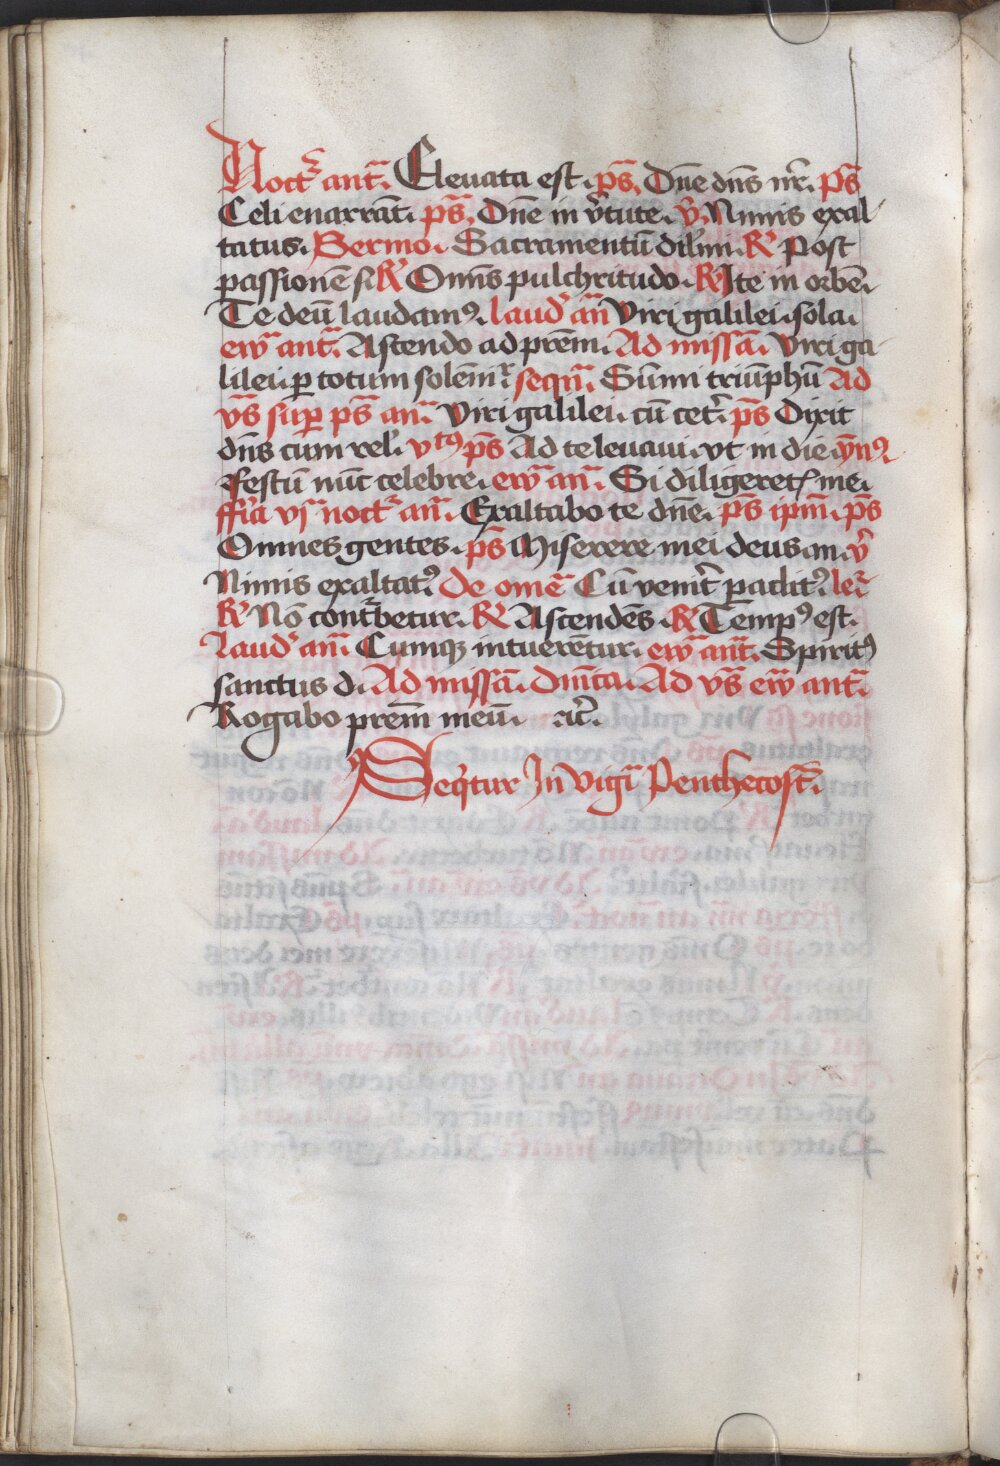 Noct᷑ ant̃. Eleuata est. ps̃. Dñe dñs nr̃. ps̃
Celi enarrãt. ps̃. Dñe in v̾tute. v̾. Nimis exal
tatus. Sermo. Sacramentũ dil̾m. R̾ Post
passionẽ s. R̾ Omñs pulchritudo. R̾ Ite in orbẽ.
Te deũ laudamꝰ. laud̾ añ Viri galilei. sola.
ew̃ ant̃. Ascendo ad pr̃em. Ad missã. Viri ga
lilei. p̱ totum solẽm᷑. seqñ. Sũmi triũphũ Ad
vs̃ sup̱ ps̃ añ. Viri galilei. cũ cet̾. ps̃ Dixit
dñs cum rel̾. vtꝰ ps̃ Ad te leuaui. vt in die. ẏnꝰ
Festũ nũc celebre. ew̃ añ. Si diligeret᷑ me.
ffr̃ia vj noct᷑ añ. Exaltabo te dñe. ps̃ ip̃m. ps̃
Omnes gentes. ps̃ Miserere mei deus. m. v̾
Nimis exaltatꝰ De om̃e Cũ venit̾ paclit̾ꝰ lec̃
R̾ Nõ conturbetur. R̾ Ascendẽs. R̾ Tempꝰ est.
Laud̾ añ. Cumqꝫ intuerẽtur. ew̃ ant̃. Spiritꝰ
sanctus d. Ad missã. dñica. Ad vs̃ ew̃ ant̃.
Rogabo pr̃em meũ. ⁊c̃.
Seq̾tur In vigil̾ Penthecost̃.